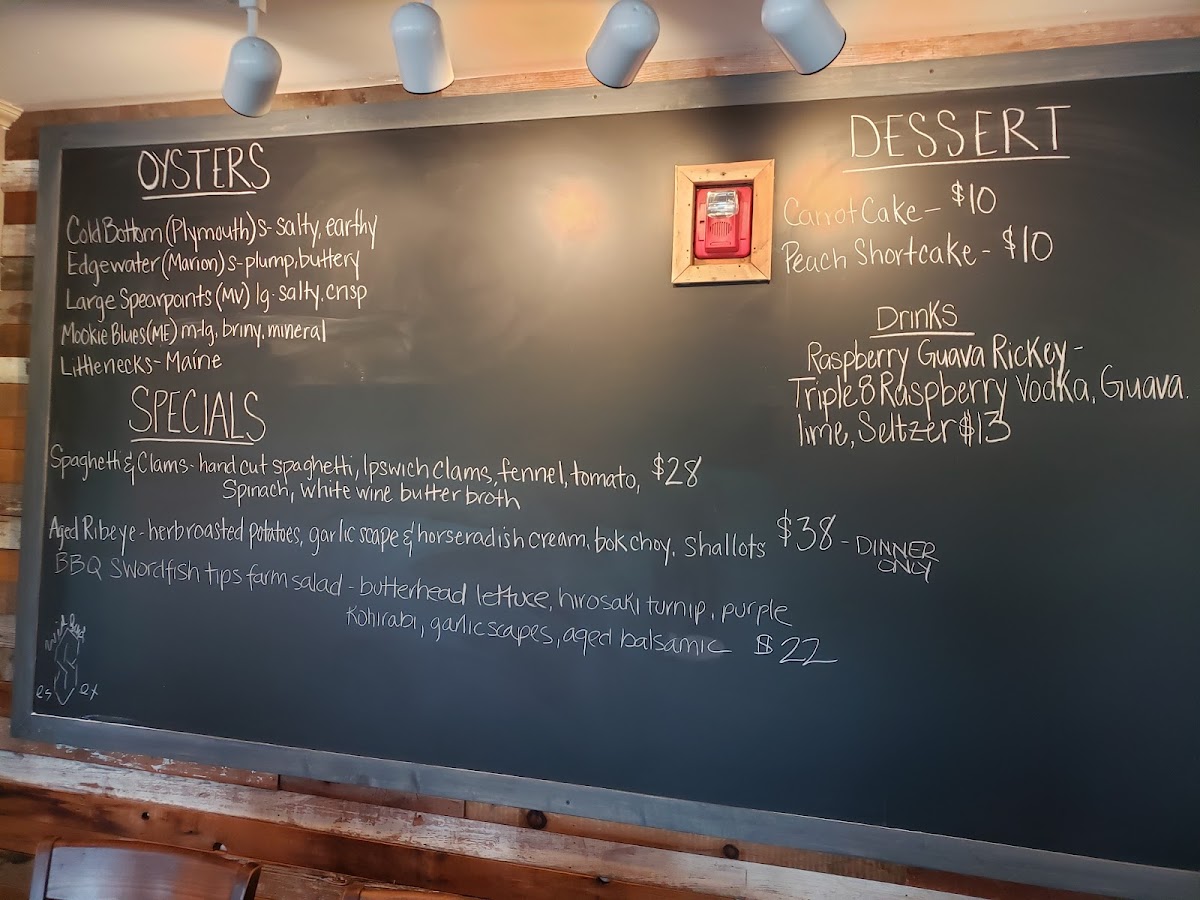 OYSTERS
Cold Bottom (Plymouth) s - salty, earthy
Edgewater (Marion) s - plump, buttery
Large Spearpoints (MV) lg - salty, crisp
Mookie Blues (ME) m-lg, briny, mineral
Littlenecks - Maine
SPECIALS
Spaghetti & Clams - hand cut spaghetti, Ipswich clams, fennel, tomato, $28
Spinach, white wine butter broth
Aged Ribeye - herb roasted potatoes, garlic scape & horseradish cream, bok choy, shallots $38 - DINNER
ONLY
BBQ Swordfish tips farm salad - butterhead lettuce, hirosaki turnip, purple
Kohlrabi, garlic scapes, aged balsamic $22
es ex
DESSERT
Carrot Cake - $10
Peach Shortcake - $10
Drinks
Raspberry Guava Rickey -
Triple 8 Raspberry Vodka, Guava.
lime, Seltzer $13